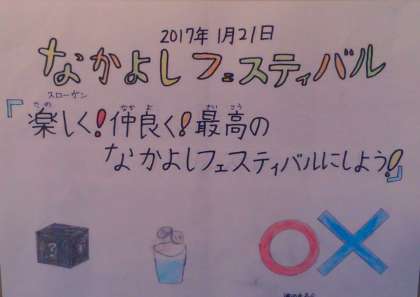 2017年1月21日
なかよしフェスティバル
スローガン
『楽しく!仲良く!最高の
なかよしフェスティバルにしよう!』